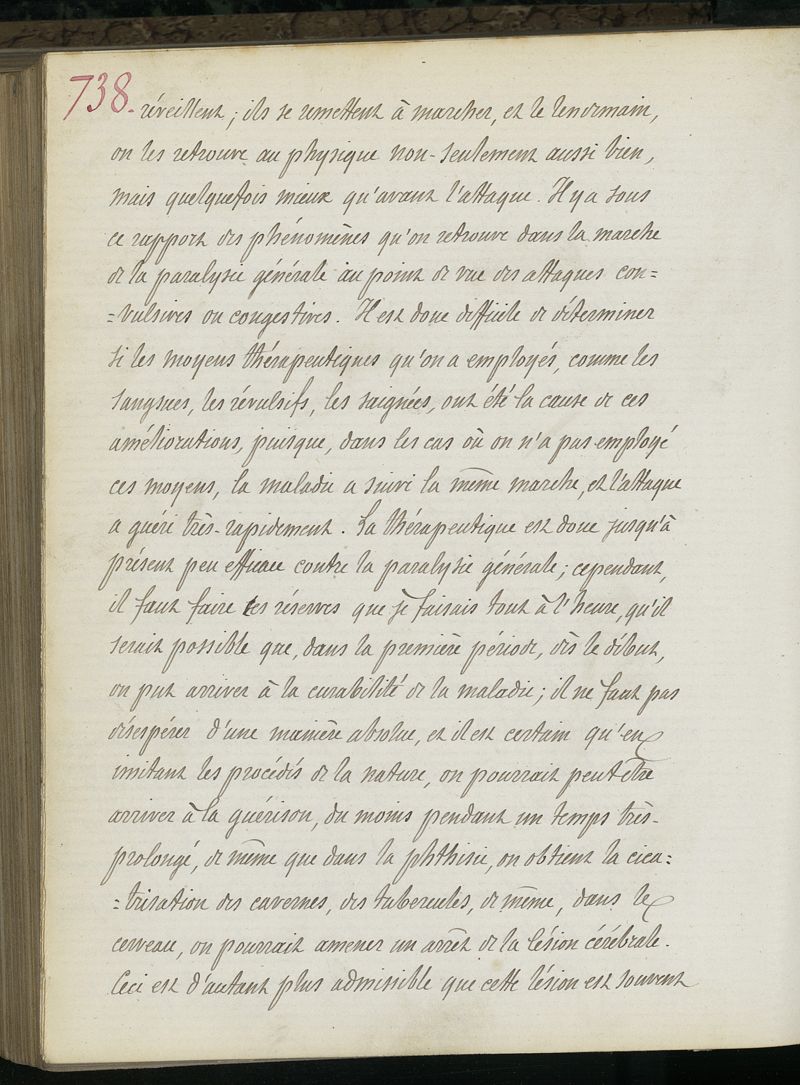 738.
réveillent ; ils se remettent à marcher, et le lendemain,
on les retrouve au physique non-seulement aussi bien,
mais quelquefois mieux qu'avant l'attaque. Il y a sous
ce rapport des phénomènes qu'on retrouve dans la marche
de la paralysie générale au point de vue des attaques con=
=vulsives ou congestives. Il est donc difficile de déterminer
si les moyens thérapeutiques qu'on a employés, comme les
sangsues, les révulsifs, les saignées, ont été la cause de ces
améliorations, puisque, dans les cas où on n'a pas employé
ces moyens, la maladie a suivi la même marche, et l'attaque
a guéri très-rapidement. La thérapeutique est donc jusqu'à
présent peu efficace contre la paralysie générale ; cependant,
il faut faire les réserves que je faisais tout à l'heure, qu'il
serait possible que, dans la première période, dès le début,
on put arriver à la curabilité de la maladie ; il ne faut pas
désespérer d'une manière absolue, et il est certain qu'en
imitant les procédés de la nature, on pourrait peut être
arriver à la guérison, du moins pendant un temps très-
prolongé, de même que dans la phthisie, on obtient la cica=
=trisation des cavernes, des tubercules, de même, dans le
cerveau, on pourrait amener un arrêt de la lésion cérébrale.
Ceci est d'autant plus admissible que cette lésion est souvent